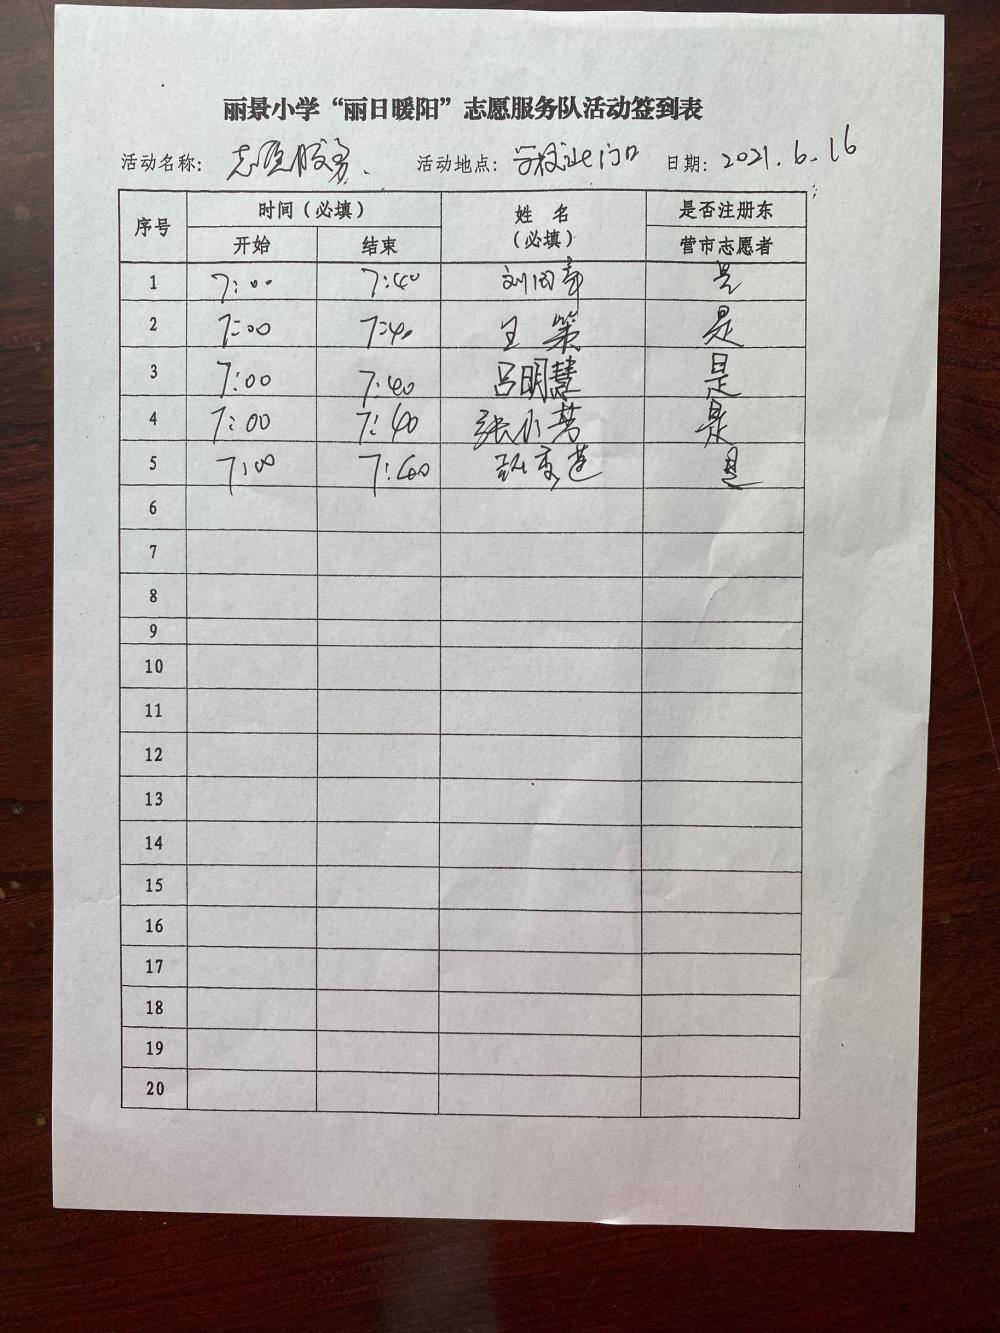 丽景小学“丽日暖阳”志愿服务队活动签到表
活动名称: 志愿服务. 活动地点: 学校北门口 日期: 2021.6.16
序号 时间(必填) 姓 名 (必填) 是否注册东营市志愿者
开始 结束
1 7:00 7:40 刘 是
2 7:00 7:40 王 策 是
3 7:00 7:40 吕明慧 是
4 7:00 7:40 张小芳 是
5 7:00 7:40 是
6
7
8
9
10
11
12
13
14
15
16
17
18
19
20